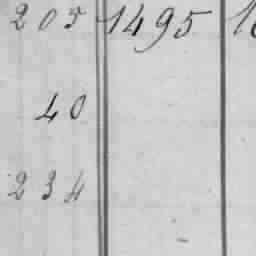 205 1495
40
234